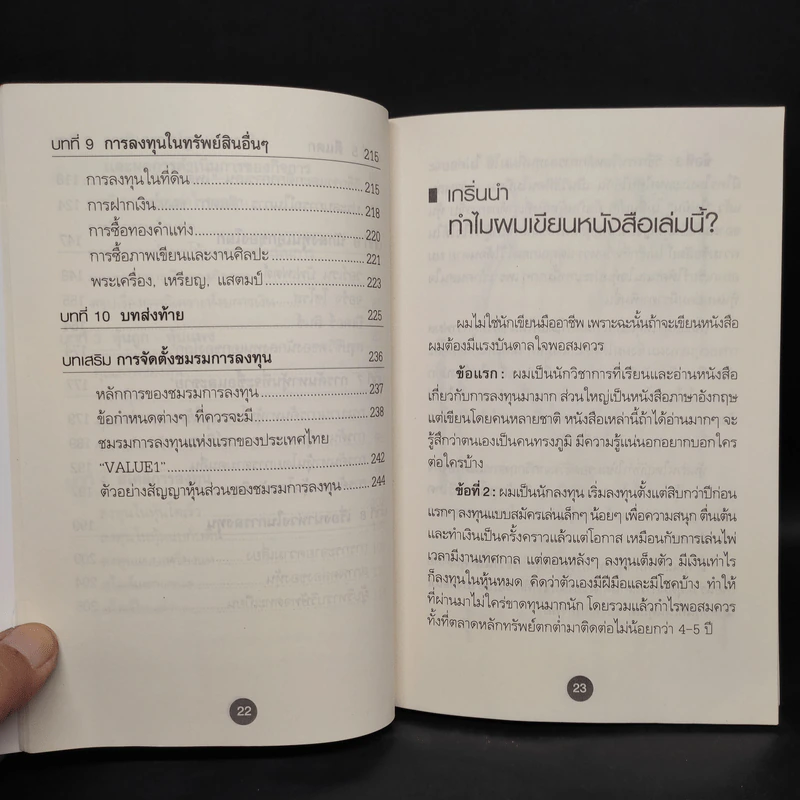 บทที่ 9 การลงทุนในทรัพย์สินอื่นๆ 215
การลงทุนในที่ดิน 215
การฝากเงิน 218
การซื้อทองคำแท่ง 220
การซื้อภาพเขียนและงานศิลปะ 221
พระเครื่อง, เหรียญ, แสตมป์ 223
บทที่ 10 บทส่งท้าย 225
บทเสริม การจัดตั้งชมรมการลงทุน 236
หลักการของชมรมการลงทุน 237
ข้อกำหนดต่างๆ ที่ควรจะมี 238
ชมรมการลงทุนแห่งแรกของประเทศไทย
"VALUE1" 242
ตัวอย่างสัญญาหุ้นส่วนของชมรมการลงทุน 244
22
เกริ่นนำ
ทำไมผมเขียนหนังสือเล่มนี้?
ผมไม่ใช่นักเขียนมืออาชีพ เพราะฉะนั้นถ้าจะเขียนหนังสือ
ผมต้องมีแรงบันดาลใจพอสมควร
ข้อแรก : ผมเป็นนักวิชาการที่เรียนและอ่านหนังสือ
เกี่ยวกับการลงทุนมามาก ส่วนใหญ่เป็นหนังสือภาษาอังกฤษ
แต่เขียนโดยคนหลายชาติ หนังสือเหล่านี้ถ้าได้อ่านมากๆ จะ
รู้สึกว่าตนเองเป็นคนทรงภูมิ มีความรู้แน่นอกอยากบอกใคร
ต่อใครบ้าง
ข้อที่ 2 : ผมเป็นนักลงทุน เริ่มลงทุนตั้งแต่สิบกว่าปีก่อน
แรกๆ ลงทุนแบบสมัครเล่นเล็กๆ น้อยๆ เพื่อความสนุก ตื่นเต้น
และทำเป็นครั้งคราวแล้วแต่โอกาส เหมือนกับการเล่นไพ่
เวลามีงานเทศกาล แต่ตอนหลังๆ ลงทุนเต็มตัว มีเงินเท่าไร
ก็ลงทุนในหุ้นหมด คิดว่าตัวเองมีฝีมือและมีโชคบ้าง ทำให้
ที่ผ่านมาไม่ใคร่ขาดทุนมากนัก โดยรวมแล้วกำไรพอสมควร
ทั้งที่ตลาดหลักทรัพย์ตกต่ำมาติดต่อไม่น้อยกว่า 4-5 ปี
23